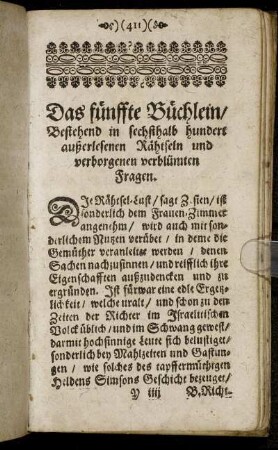 (411)
Das fünffte Büchlein/
Bestehend in sechsthalb hundert
außerlesenen Rähtseln und
verborgenen verblümten
Fragen.
DIe Rähtsel-Lust/ sagt Z. sien/ ist
sonderlich dem Frauen-Zimmer
angenehm/ wird auch mit son-
derlichem Nutzen verübet / in deme die
Gemüther veranleitet werden / denen
Sachen nachzusinnen / und reifflich ihre
Eigenschafften außzudencken und zu
ergründen. Ist fürwar eine edle Ergetz-
lichkeit / welche uralt / und schon zu den
Zeiten der Richter im Israelitischen
Volck üblich / und im Schwang gewest/
darmit hochsinnige Leute sich belustiget/
sonderlich bey Mahlzeiten und Gastun-
gen / wie solches des tapffermüthigen
Heldens Simsons Geschicht bezeuget/
Y iiij B. Richt-